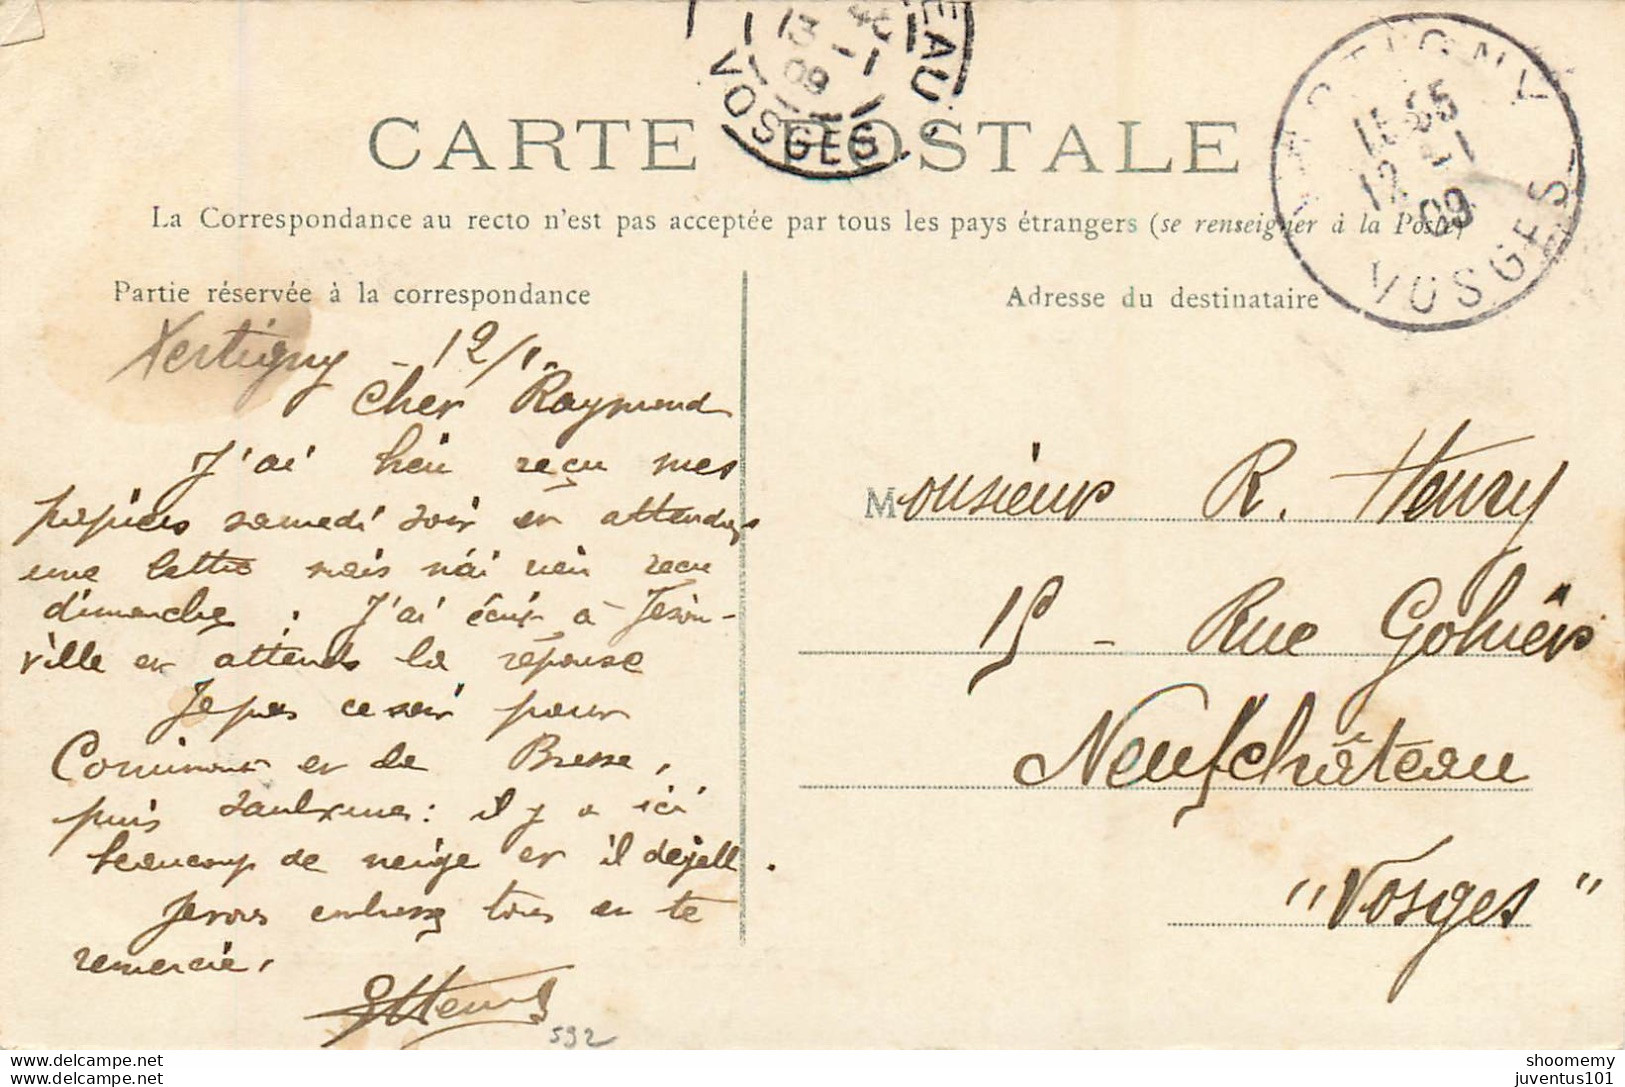 CARTE POSTALE
La Correspondance au recto n'est pas acceptée par tous les pays étrangers (se renseigner à la Poste)
Partie réservée à la correspondance
Xertigny - 12/1.
Cher Raymond
J'ai bien reçu mes
papiers samedi soir en attendais
une lettre mais n'ai rien reçu
dimanche. J'ai écrit à Jeson-
ville en attends la réponse
Je pars ce soir pour
Cornimont et la Bresse,
puis Saulxures : il y a ici
beaucoup de neige et il dégèle.
Je vous embrasse tous en te
remercie.
592
Adresse du destinataire
Monsieur R. Henry
15 - Rue Gohier
Neufchâteau
"Vosges"
EAU
13 45
-1
09
VOSGES
XERTIGNY
12 -1
09
VOSGES
delcampe.net
delcampe.net
shoomemy
juventus101